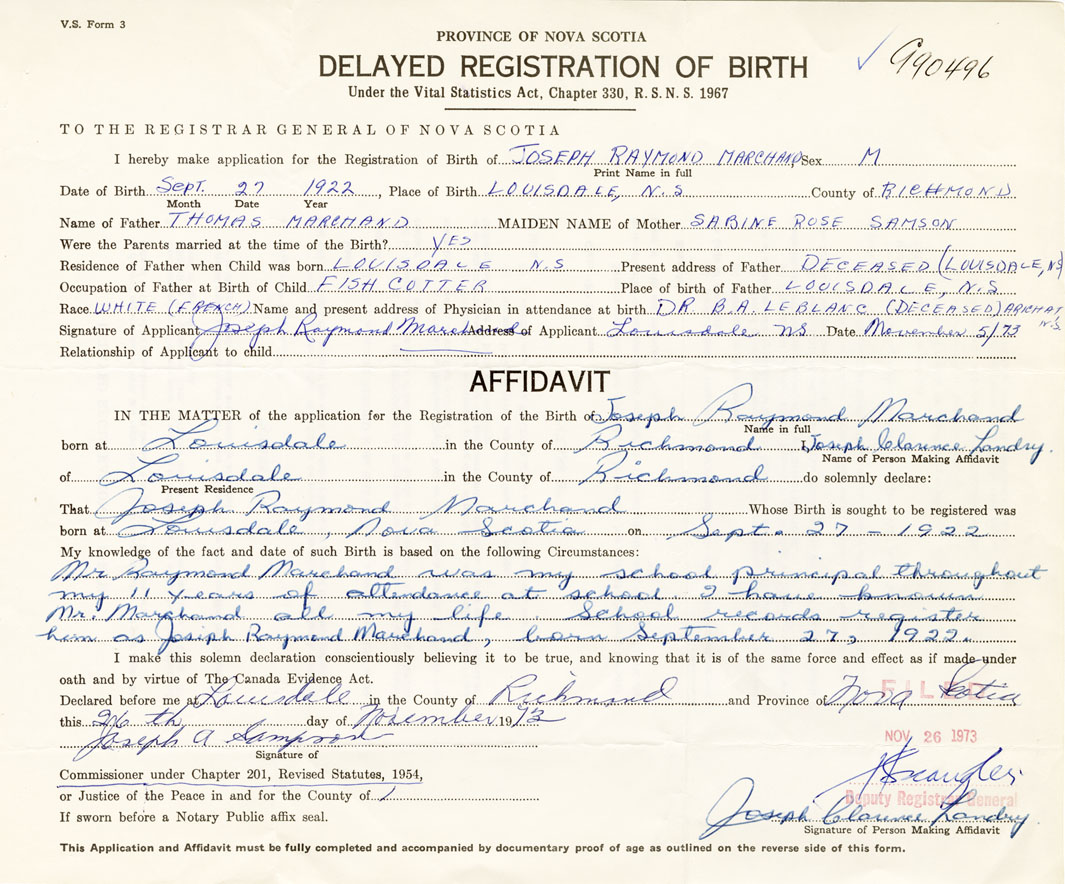 V.S. Form 3
PROVINCE OF NOVA SCOTIA
G90496
DELAYED REGISTRATION OF BIRTH
Under the Vital Statistics Act, Chapter 330, R.S.N.S. 1967
TO THE REGISTRAR GENERAL OF NOVA SCOTIA
I hereby make application for the Registration of Birth of JOSEPH RAYMOND MARCHAND Sex M
Print Name in full
Date of Birth SEPT. 27 1922, Place of Birth LOUISDALE, N.S County of RICHMOND
Month Date Year
Name of Father THOMAS MARCHAND MAIDEN NAME of Mother SABINE ROSE SAMSON
Were the Parents married at the time of the Birth? YES
Residence of Father when Child was born LOUISDALE N.S Present address of Father DECEASED (LOUISDALE, NS
Occupation of Father at Birth of Child FISH COTTER Place of birth of Father LOUISDALE, N.S.
Race WHITE (FRENCH) Name and present address of Physician in attendance at birth DR. B.A. LEBLANC (DECEASED) ARICHAT N.S.
Signature of Applicant Joseph Raymond Marchand Address of Applicant Louisdale NS Date November 5/73
Relationship of Applicant to child
AFFIDAVIT
IN THE MATTER of the application for the Registration of the Birth of Joseph Raymond Marchand
Name in full
born at Louisdale in the County of Richmond I, Joseph Clarence Landry.
Name of Person Making Affidavit
of Louisdale in the County of Richmond do solemnly declare:
Present Residence
That Joseph Raymond Marchand Whose Birth is sought to be registered was
born at Louisdale, Nova Scotia on Sept. 27 - 1922
My knowledge of the fact and date of such Birth is based on the following Circumstances:
Mr Raymond Marchand was my school principal throughout
my 11 years of attendance at school. I have known
Mr. Marchand all my life. School records register
him as Joseph Raymond Marchand, born September 27, 1922.
I make this solemn declaration conscientiously believing it to be true, and knowing that it is of the same force and effect as if made under
oath and by virtue of The Canada Evidence Act.
Declared before me at Louisdale in the County of Richmond and Province of Nova Scotia
FILED
this 26 th day of November 1973
NOV 26 1973
Joseph A Sampson
Signature of
Commissioner under Chapter 201, Revised Statutes, 1954,
or Justice of the Peace in and for the County of
Deputy Registrar General
If sworn before a Notary Public affix seal.
Joseph Clarence Landry.
Signature of Person Making Affidavit
This Application and Affidavit must be fully completed and accompanied by documentary proof of age as outlined on the reverse side of this form.